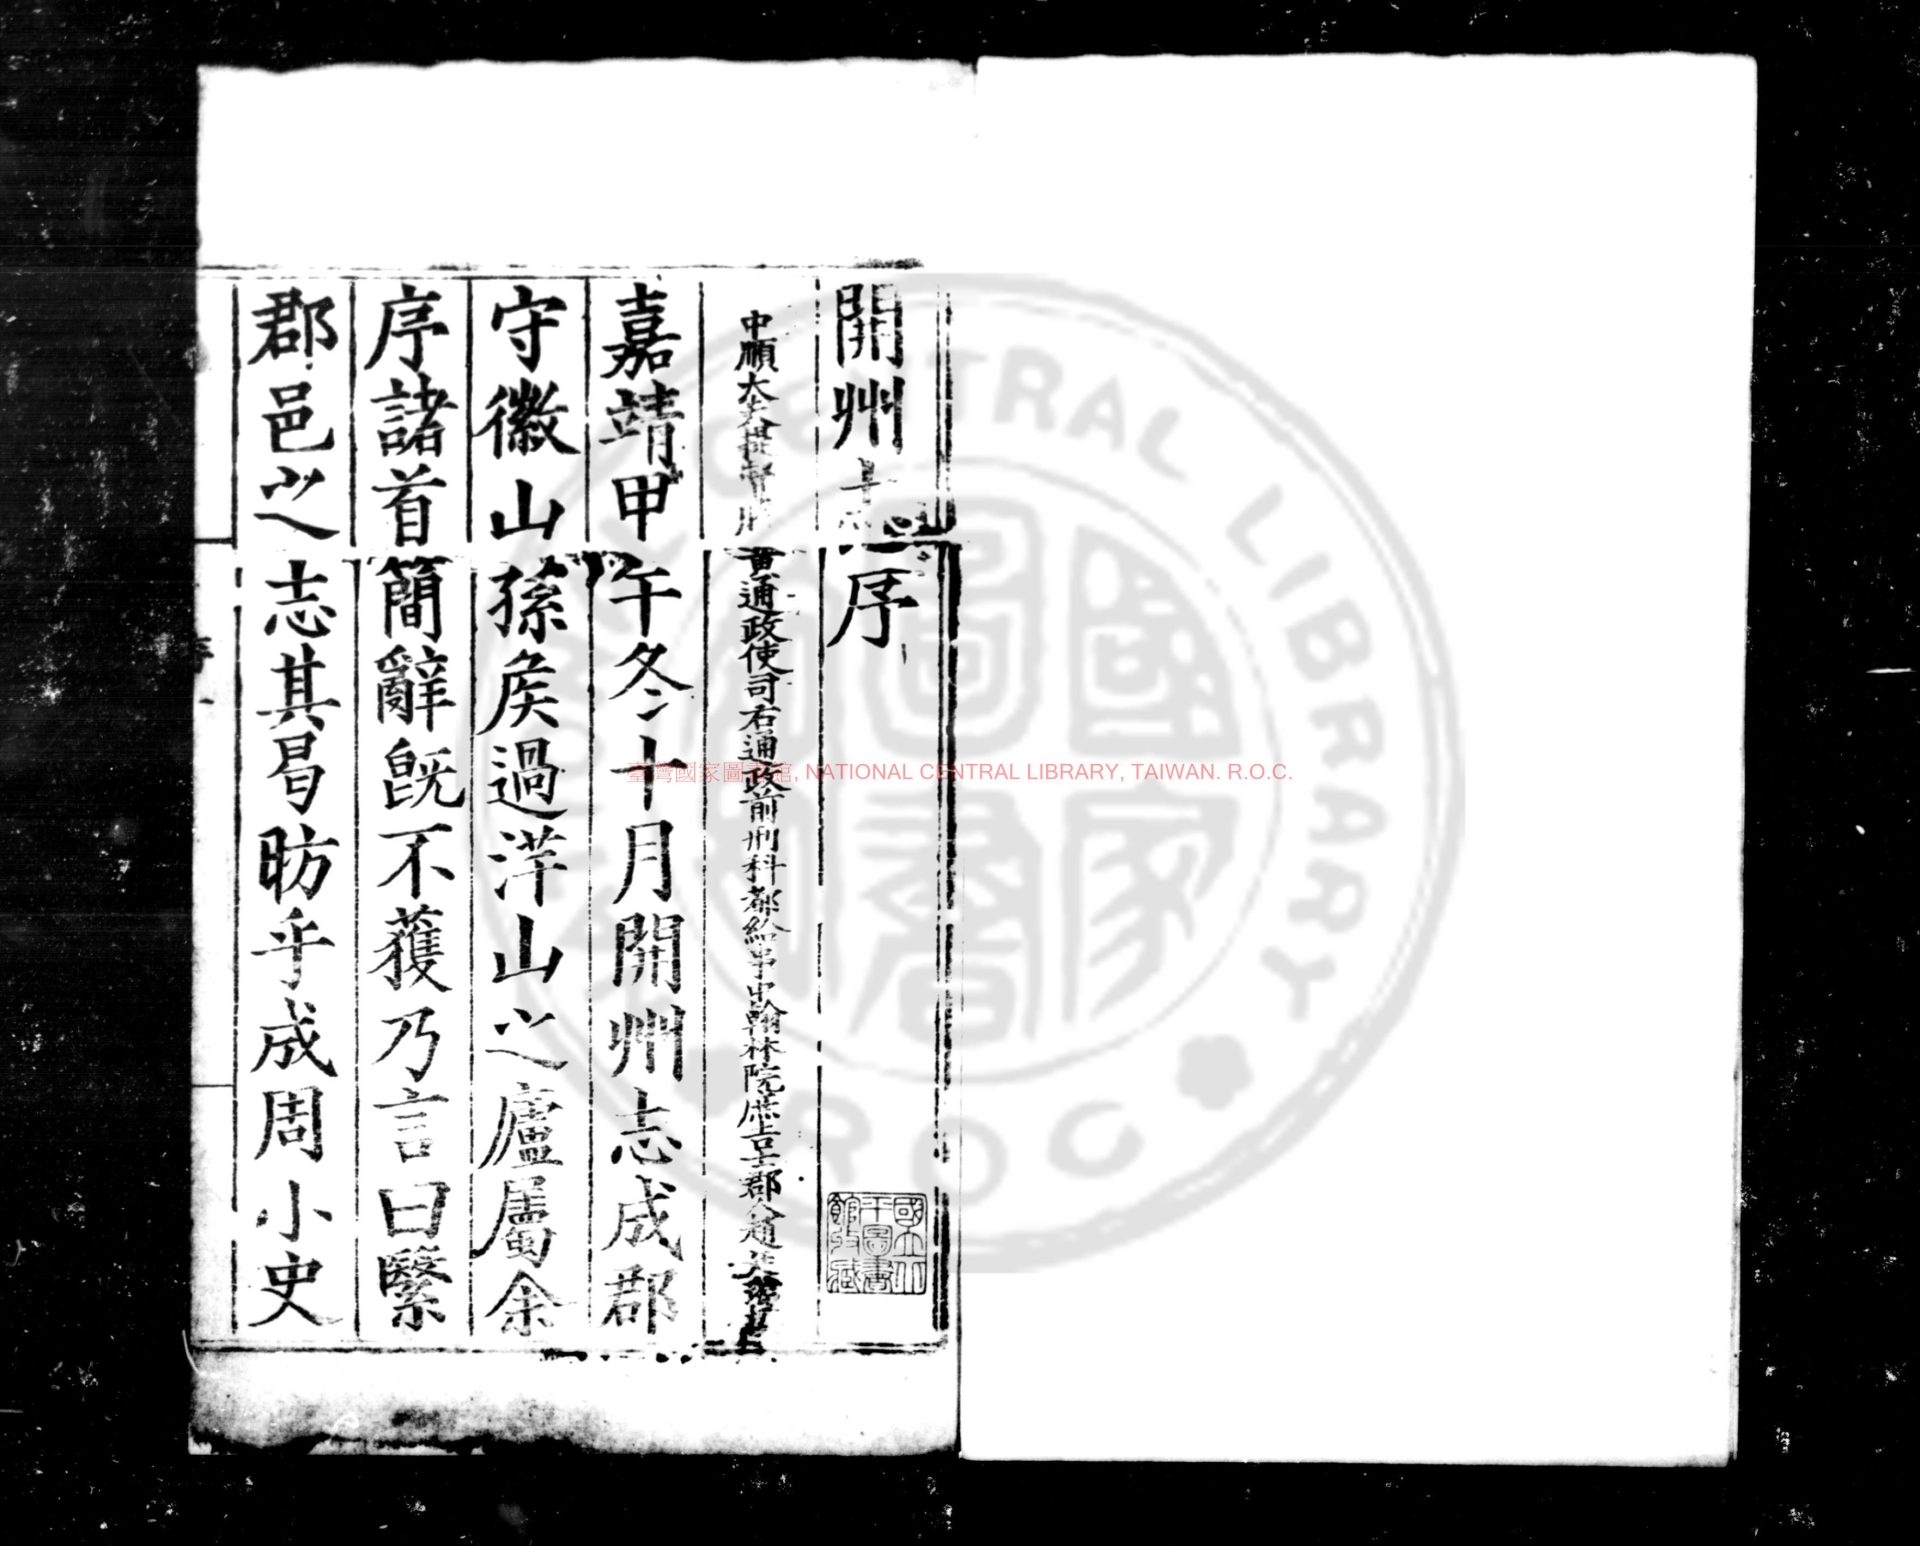 開州志序
中順大夫提督謄黃通政使司右通政前刑科都給事中翰林院庶吉士郡人
嘉靖甲午冬十月開州志成郡
守徽山孫矦過洋山之廬屬余
序諸首簡辭旣不獲乃言曰繄
郡邑之志其曷昉乎成周小史
國立北平圖書館收藏
臺灣國家圖書館, NATIONAL CENTRAL LIBRARY, TAIWAN. R.O.C.
CENTRAL LIBRARY
ROC
國家圖書